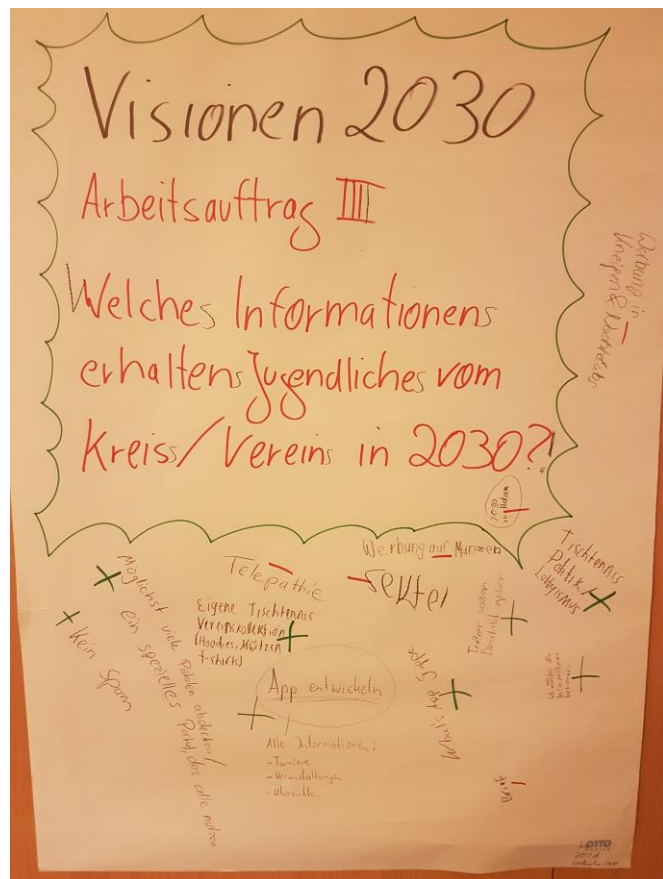 Visionen 2030
Arbeitsauftrag III
Welches Informationens
erhaltens Jugendliches vom
Kreiss/Vereins in 2030?!
Werbung in
Kneipen &
2030
Werbung auf Münzen
Telepathie
Zettel
Tischtennis
Politik/
Lobbyismus
Möglichst viele Portale abdecken/
ein spezielles Portal, das alle nutzen
Kein Spam
Eigene Tischtennis
Vereinskollektion
(Hoodies, Mützen
t-shirts)
App entwickeln
Alle Informationen:
- Turniere
- Veranstaltungen
- Übersichten
What's App Gruppe
Brief
LOTTO